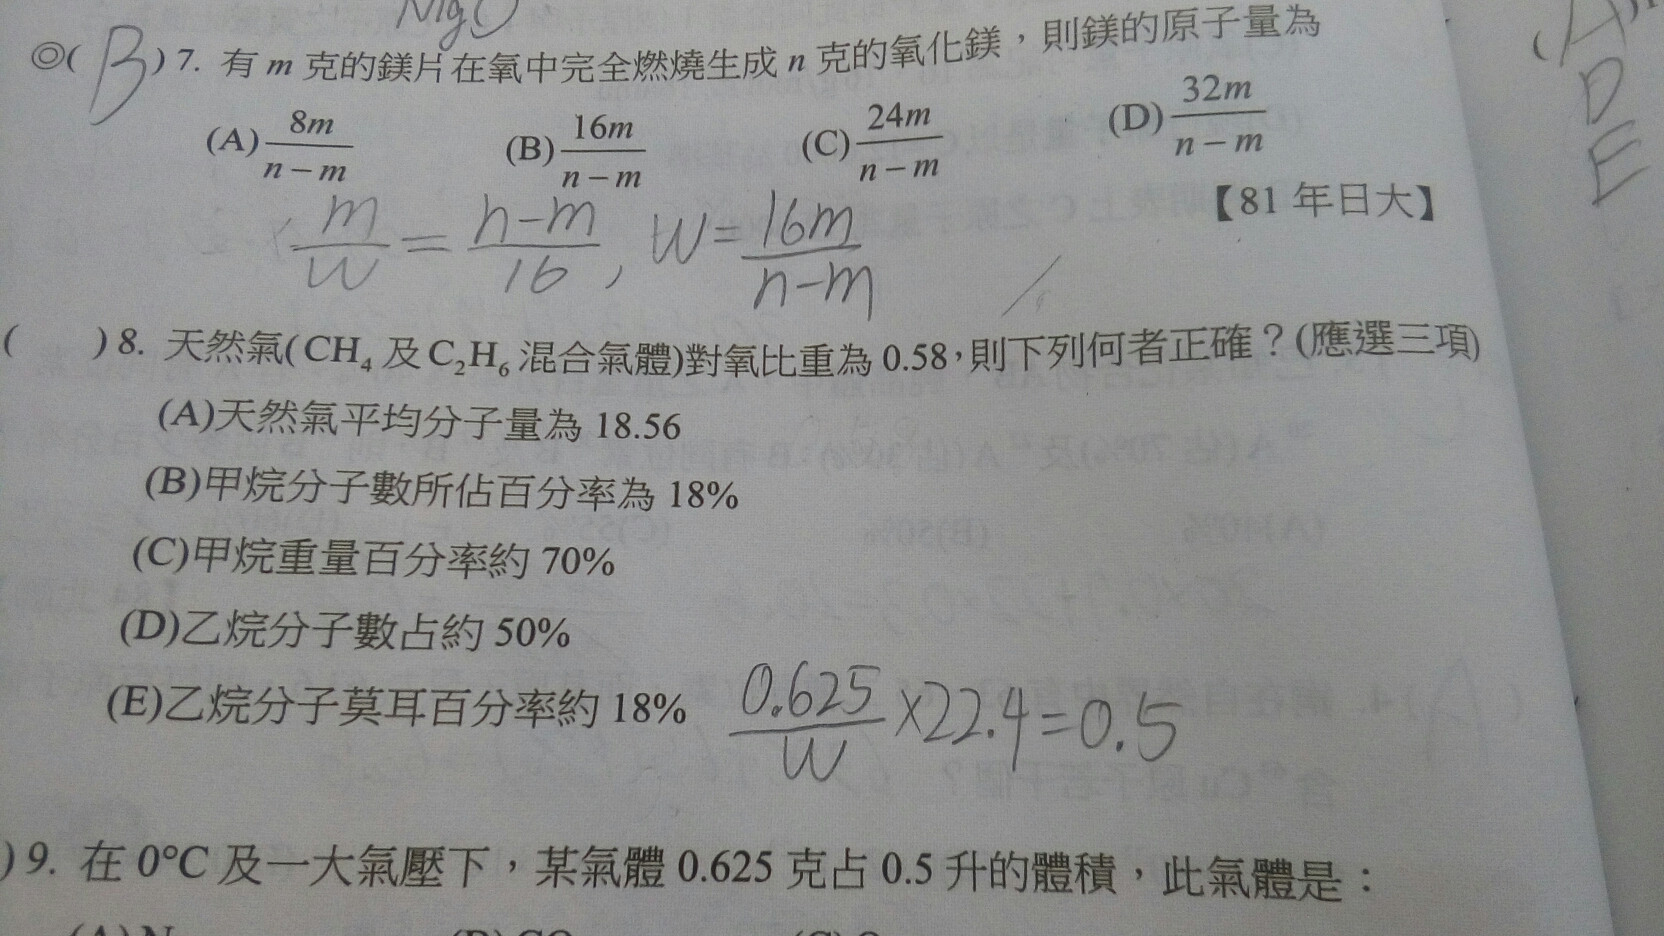 MgO
◎( B )7. 有 m 克的鎂片在氧中完全燃燒生成 n 克的氧化鎂，則鎂的原子量為
(A) 8m/(n－m) (B) 16m/(n－m) (C) 24m/(n－m) (D) 32m/(n－m)
【81 年日大】
m/W = n-m/16 , W = 16m/n-m
( )8. 天然氣(CH₄及C₂H₆混合氣體)對氧比重為 0.58，則下列何者正確？(應選三項)
(A)天然氣平均分子量為 18.56
(B)甲烷分子數所佔百分率為 18%
(C)甲烷重量百分率約 70%
(D)乙烷分子數占約 50%
(E)乙烷分子莫耳百分率約 18%
0.625/W ×22.4=0.5
)9. 在 0°C 及一大氣壓下，某氣體 0.625 克占 0.5 升的體積，此氣體是：
(A
D
E